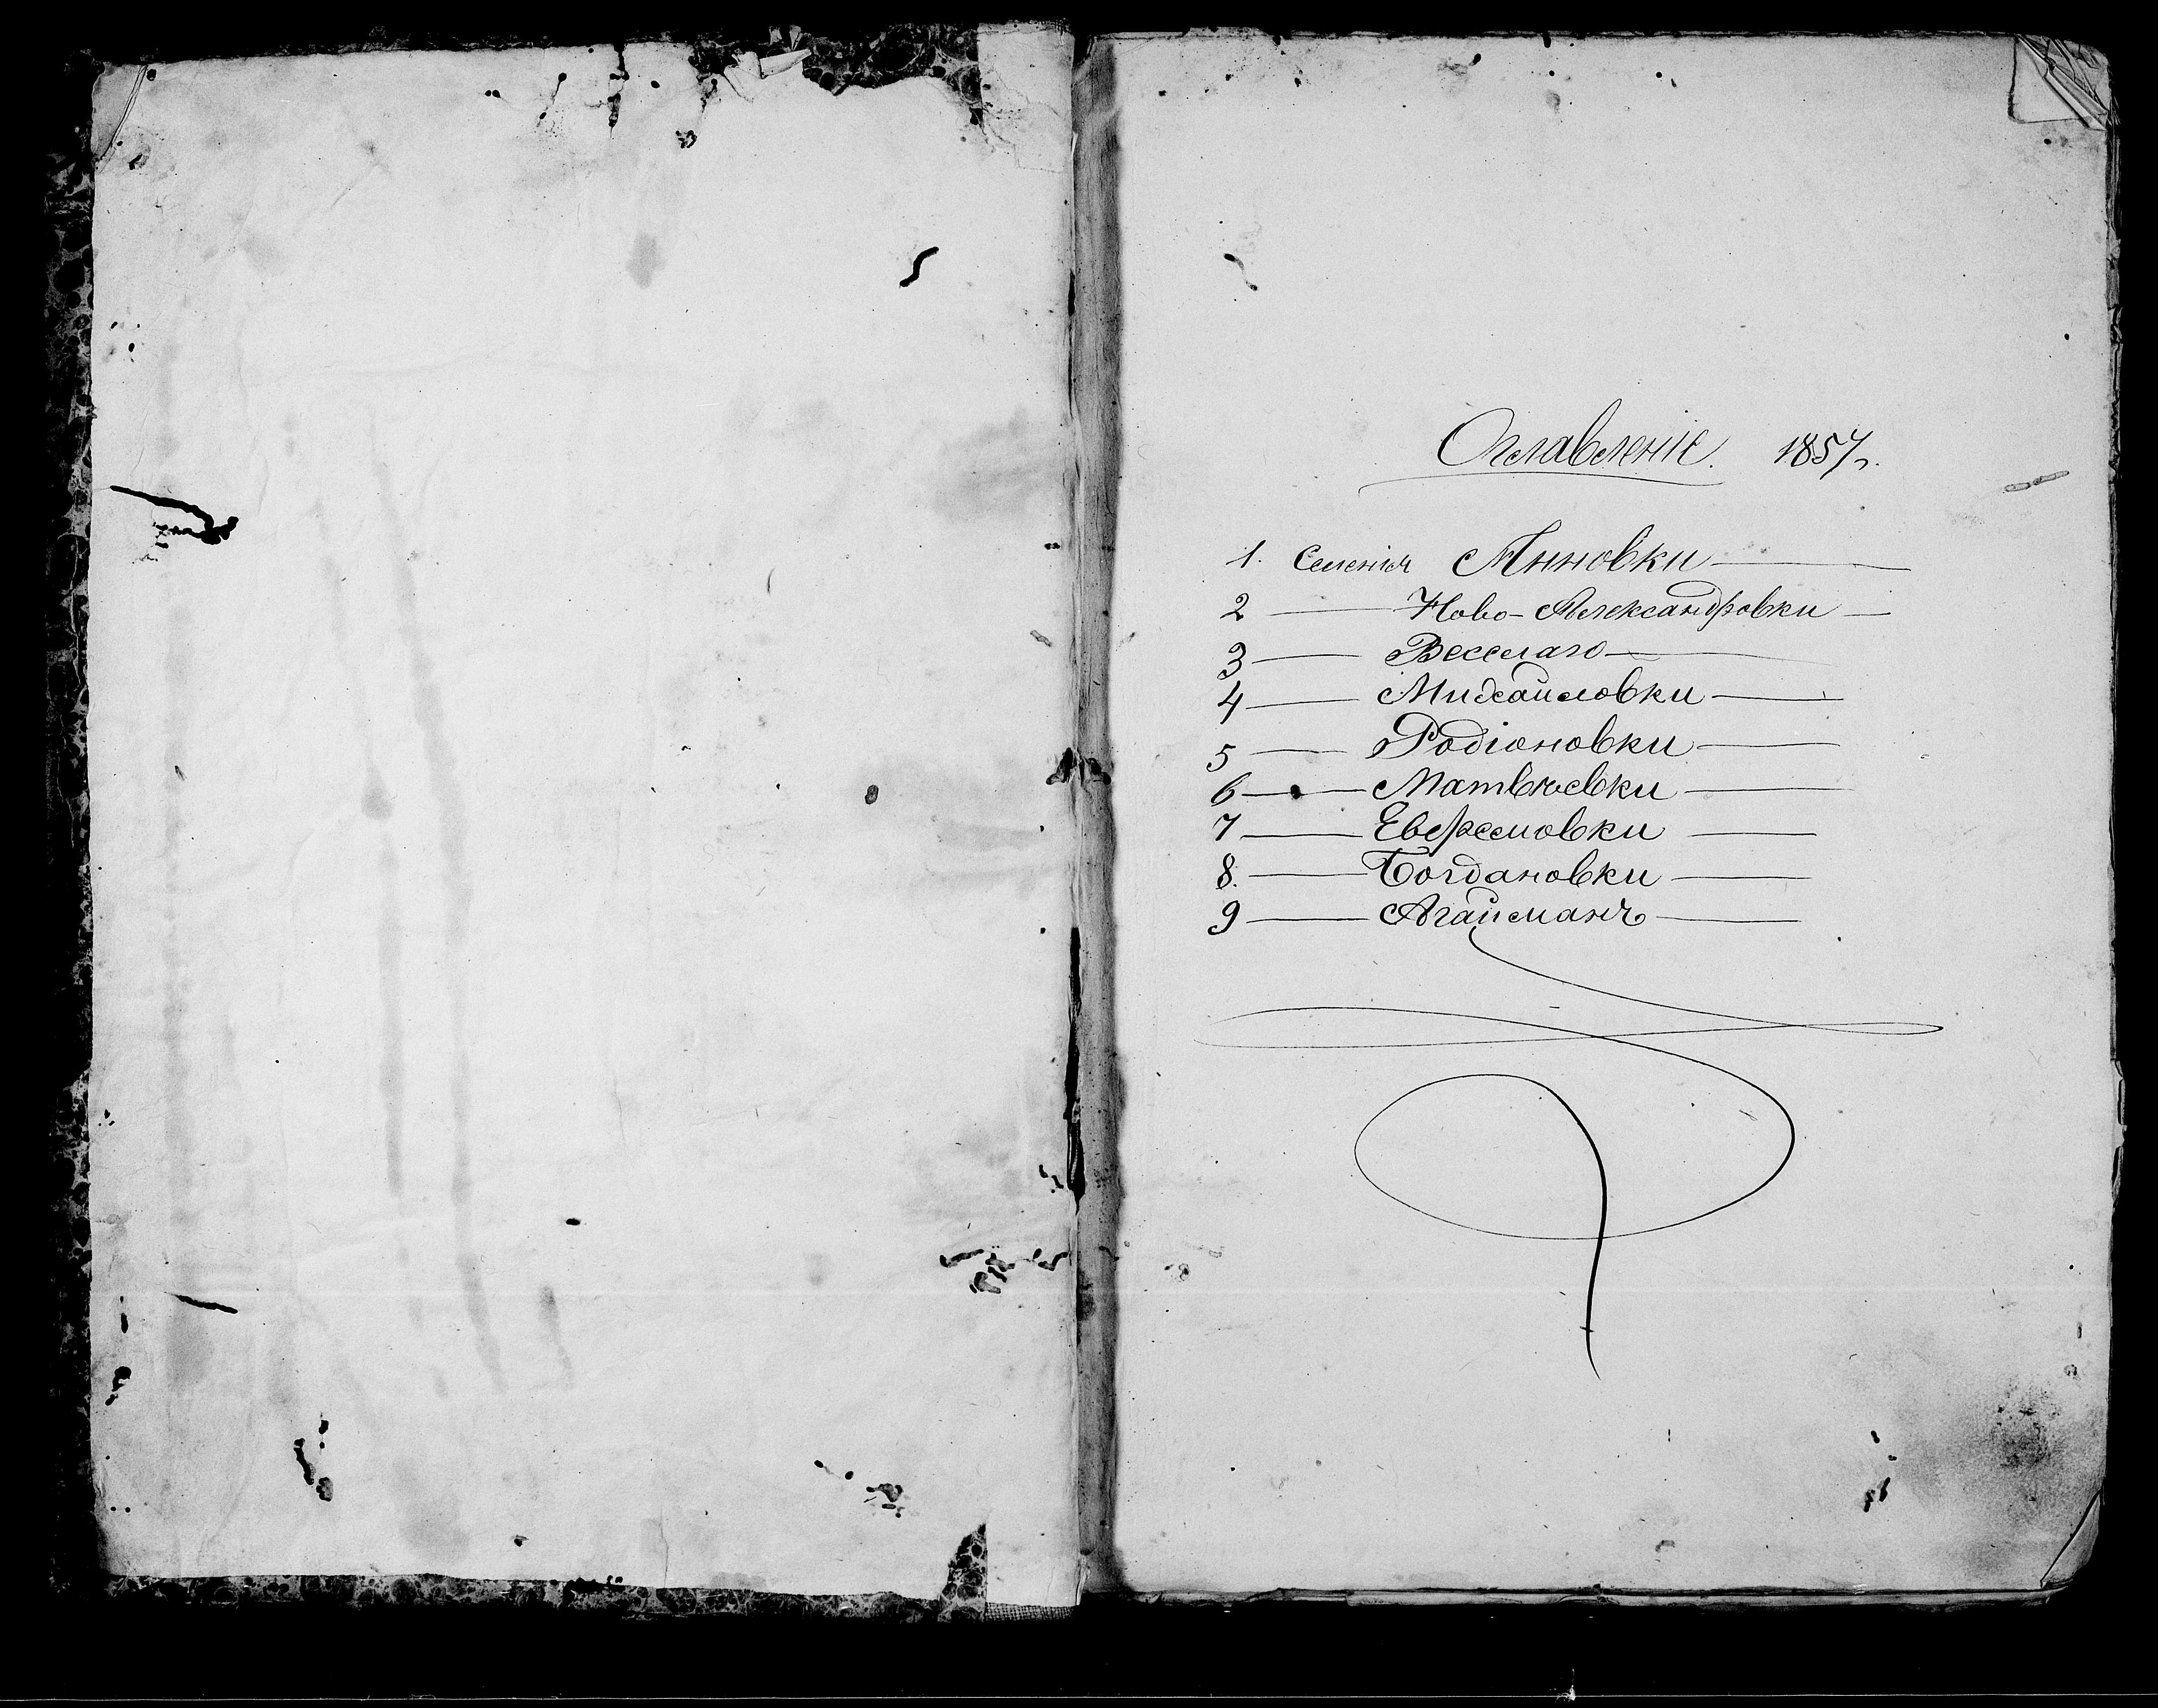 Оглавленіе. 1857 г.
1. Селенія Анновки
2 — Ново-Александровки —
3 — Веселаго —
4 — Михайловки —
5 — Родіоновки —
6 — Матвѣевки —
7 — Ефремовки —
8. — Богдановки —
9 — Агайманъ —